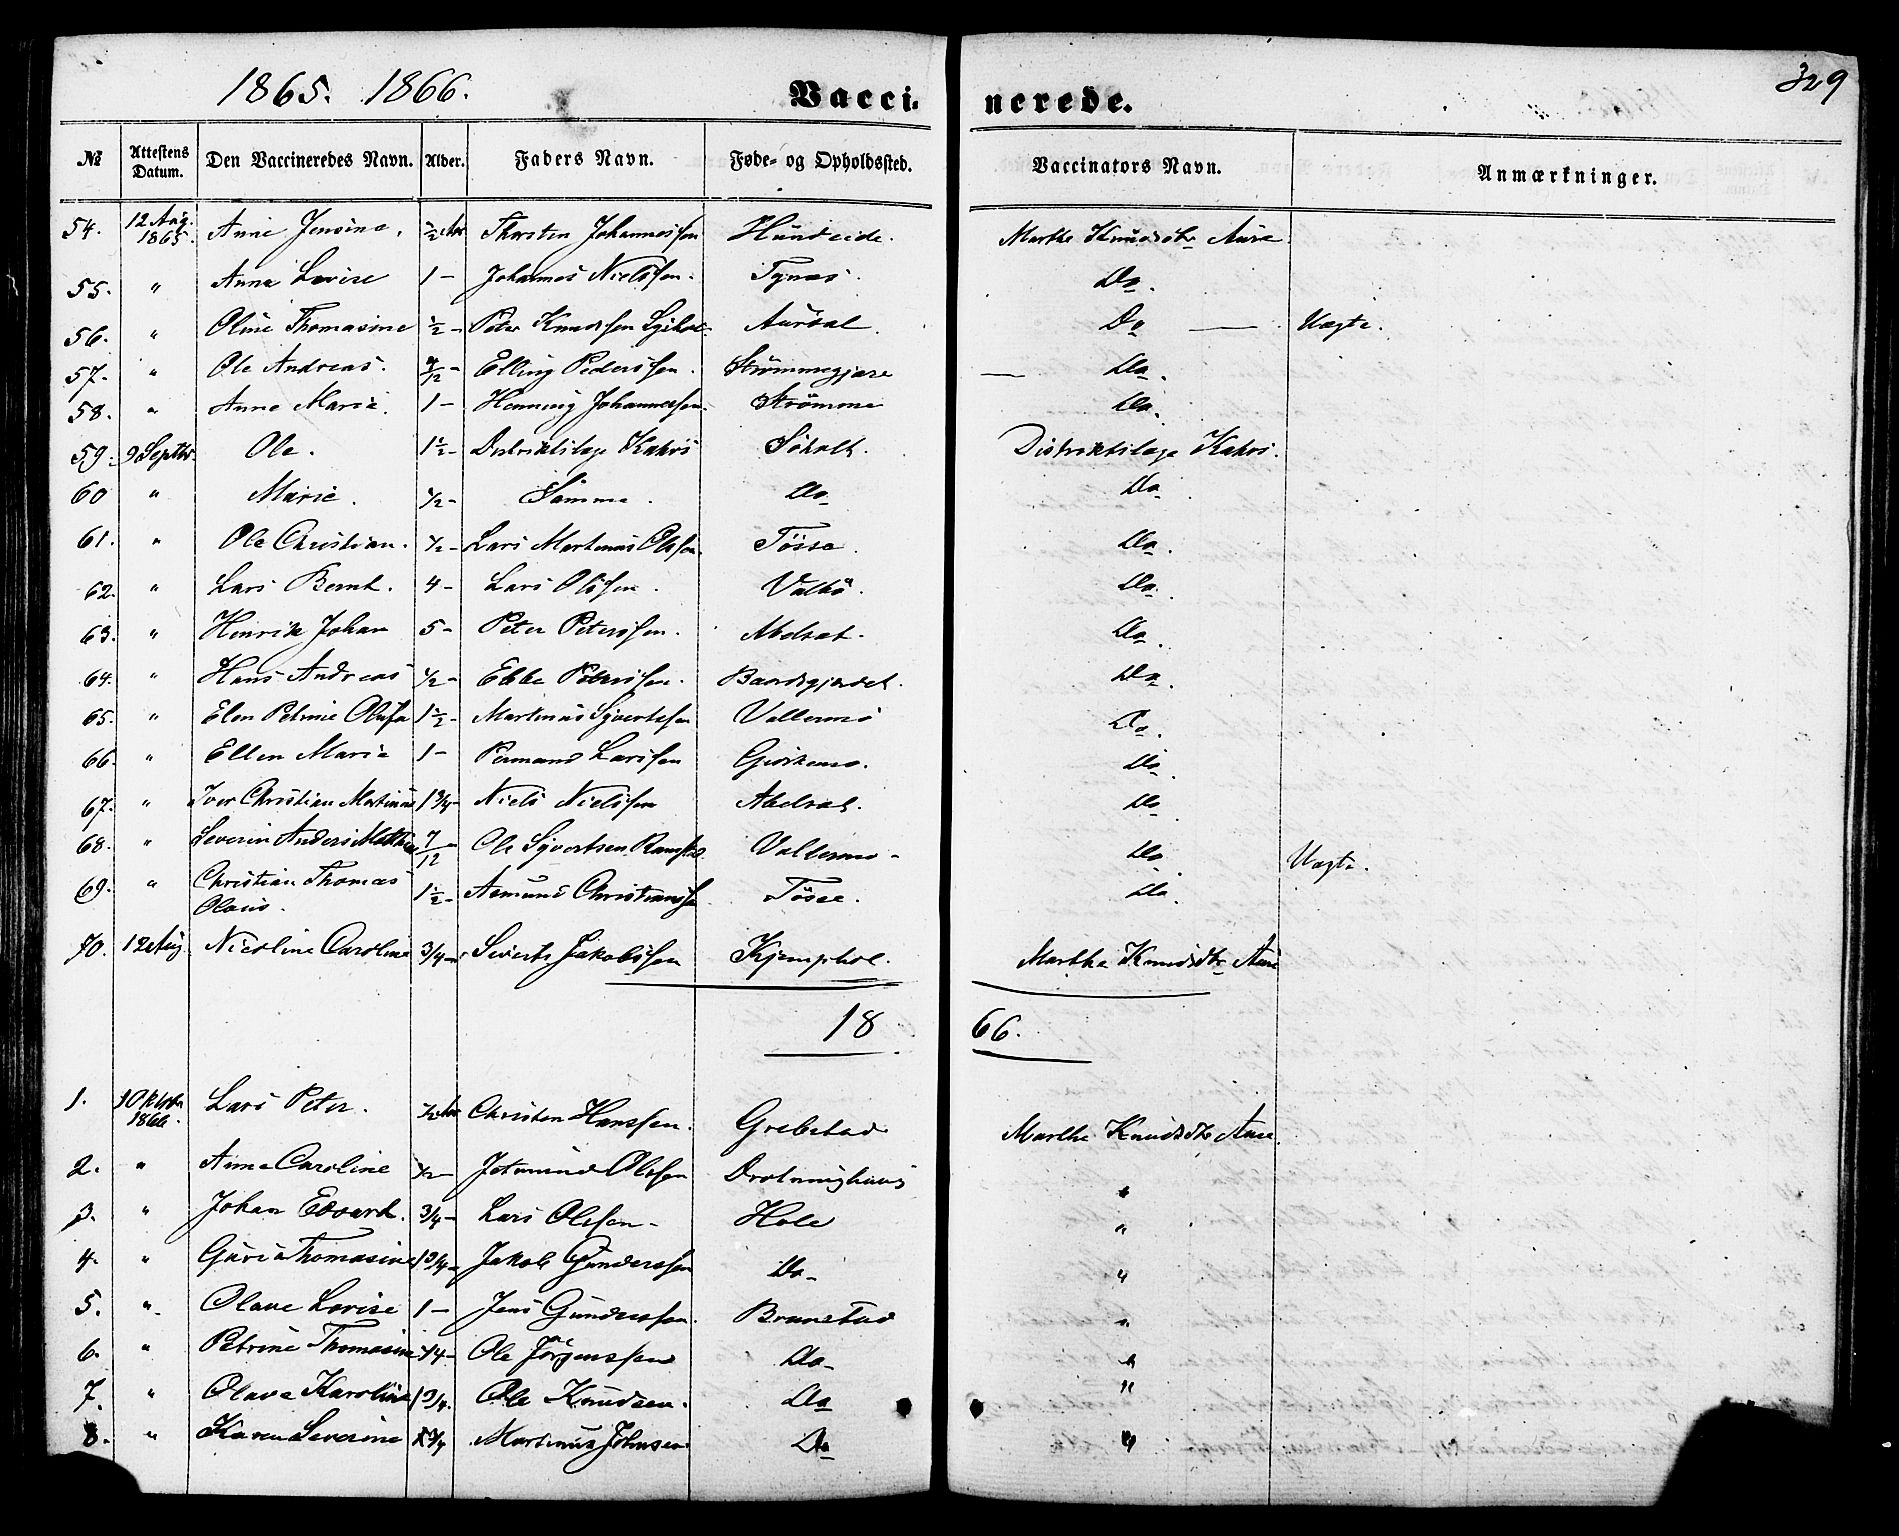 1865. 1866.
Vaccinerede.
329
№ Attestens Datum. Den Vaccineredes Navn. Alder. Faders Navn. Føde- og Opholdssted. Vaccinators Navn. Anmærkninger.
54. 12 Aug. 1865. Anne Jensine. ½ Thorsten Johannessen Hundeide. Marthe Knudsdtr Aure
55. " Anna Lovise 1 - Johannes Nielssen. Tynes. Do.
56. " Oline Thomasine ½ - Peter Knudssen Aursal. Do Uægte.
57. " Ole Andreas. Elling Pederssen. Strømmegjære Do.
58. " Anne Marie. 1 - Henning Johannessen. Strømme Do.
59. 9 Septbr. Ole. 1½ - Distriktslæge Kahrs Søholt. Distriktslæge Kahrs.
60 " Marie. ½ - Samme. Do Do.
61. " Ole Christian. ½ - Lars Martinus Olssen. Tøsse. Do.
62. " Lars Bernt. 4 - Lars Olssen. Valbø. Do.
63. " Henrik Johan 5 - Peter Peterssen. Abelset. Do.
64. " Hans Andreas ½ - Ebbe Peterssen. Baardsgjerdet. Do.
65. " Elen Petrine Olufa 1½ - Martinus Syvertssen Vallermo Do.
66. " Ellen Marie 1 - Larssen Do.
67. " Iver Christian Martinus 1¾ - Niels Nielssen Abelset. Do
68. " Severin Anders 7/12 Ole Syvertsen Ramstad Vallermo - Do Uægte.
69. " Christian Thomas Olaus. 1½ - Asmund Christianssen Tøsse. Do
70. 12 Aug. Nicoline Caroline 3/4 - Siverts Jakobssen Kjemphol. Marthe Knudsdtr Aure
18 66.
1. 1 Oktobr 1866. Lars Peter. ½ Christen Hanssen. Grebstad Marthe Knudsdtr Aure.
2. " Anne Caroline ½ - Jetmund Olssen Drotninghaug "
3. " Johan Edvard. 3/4 - Lars Olssen - Hole "
4. " Guri Thomasine 1 3/4 - Jakob Gunderssen Do - "
5. " Olave Lovise 1 - Jens Gunderssen. Brunstad "
6. " Petrine Thomasine ¼ - Ole Jørgenssen Do - "
7. " Olave Karoline 1 3/4. Ole Knudsen. Do "
8. " Karen Severine 3/4 Martinus Johnsen Do "